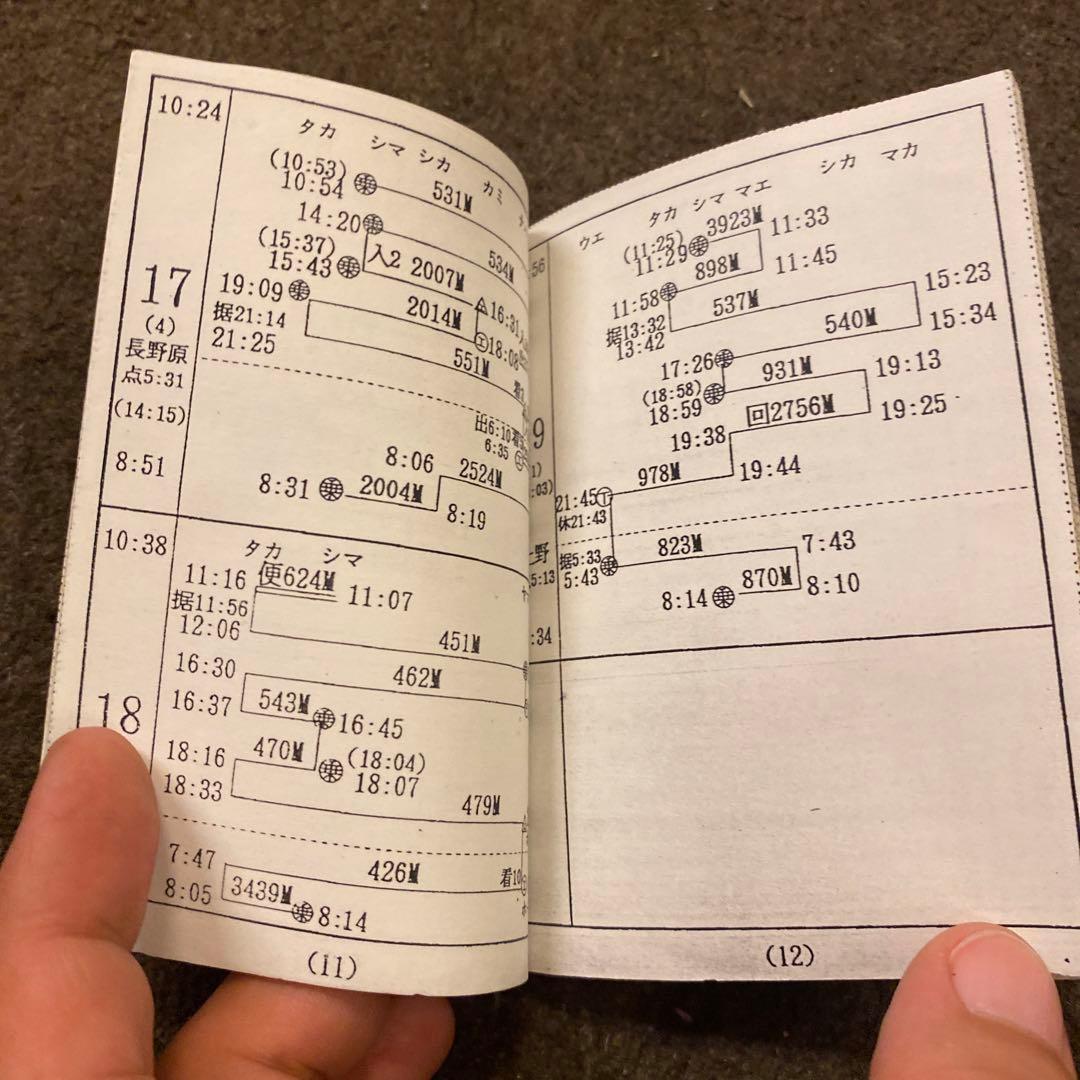 10:24
タカ シマ シカ カミ
(10:53)
10:54 乗 531M
14:20 乗
534M
(15:37)
15:43 乗 入2 2007M
17
19:09 乗 2014M
16:31
18:08
(4)
据21:14
長野原
21:25 551M
点5:31
出6:10
6:35
(14:15)
8:06 2524M
8:51
8:31 乗 2004M 8:19
10:38
タカ シマ
11:16 便624M 11:07
据11:56
12:06 451M
16:30 462M
16:37 543M 乗 16:45
18
18:16 470M 乗 (18:04)
18:07
18:33 479M
7:47 426M
8:05 3439M 乗 8:14
(11)
ウエ タカ シマ マエ シカ マカ
(11:25) 3923M 11:33
11:29 乗 898M 11:45
11:58 乗 537M 15:23
据13:32
13:42 540M 15:34
17:26 乗 931M 19:13
(18:58)
18:59 乗 回2756M 19:25
19:38
978M 19:44
21:45
休21:43
据5:33 823M 7:43
5:43 乗
8:14 乗 870M 8:10
(12)